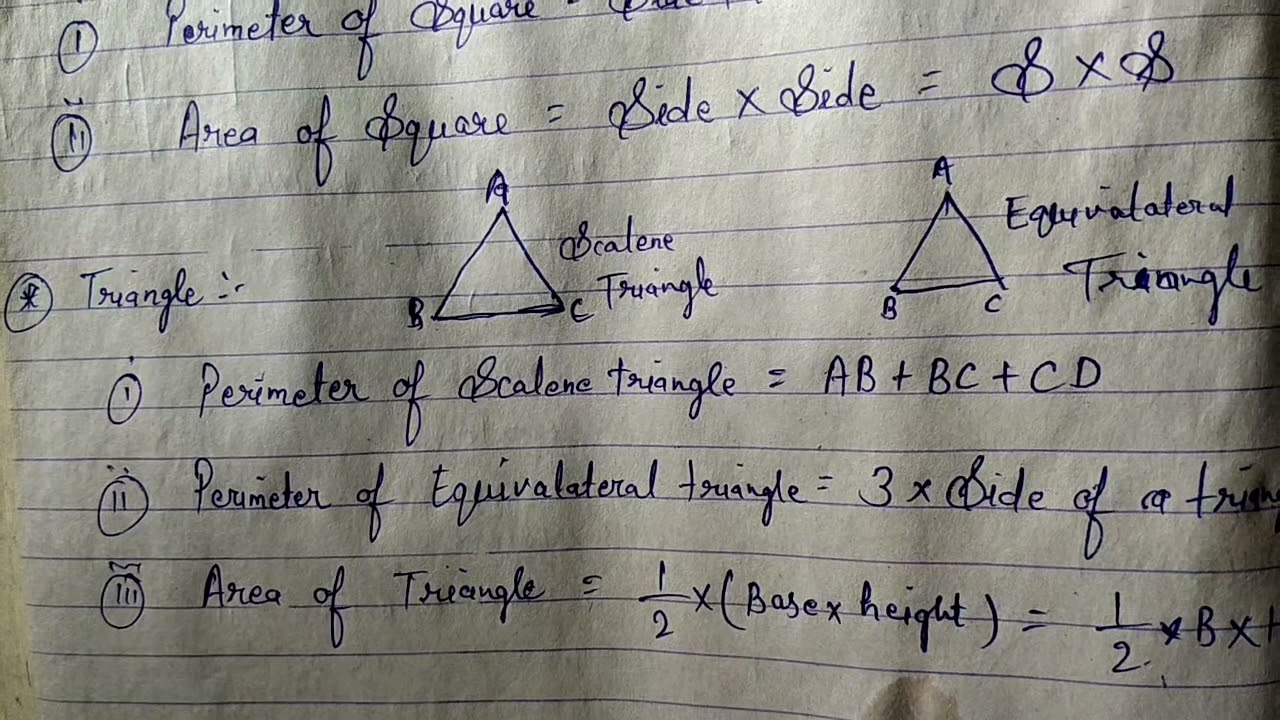 (i) Perimeter of Square =
(ii) Area of Square = Side × Side = S × S
A
Scalene
Triangle
B C
A
Equivalateral
Triangle
B C
* Triangle :-
(i) Perimeter of Scalene triangle = AB + BC + CD
(ii) Perimeter of Equivalateral triangle = 3 × Side of a triang
(iii) Area of Triangle = 1/2 × (Base × height) = 1/2 × B × H